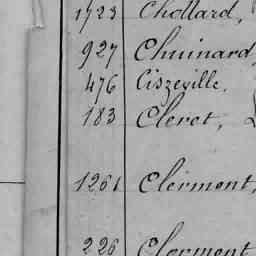 1723 Chollard,
927 Chuinard,
476 Ciszeville,
183 Cleret,
1261 Clermont,
226 Clermont